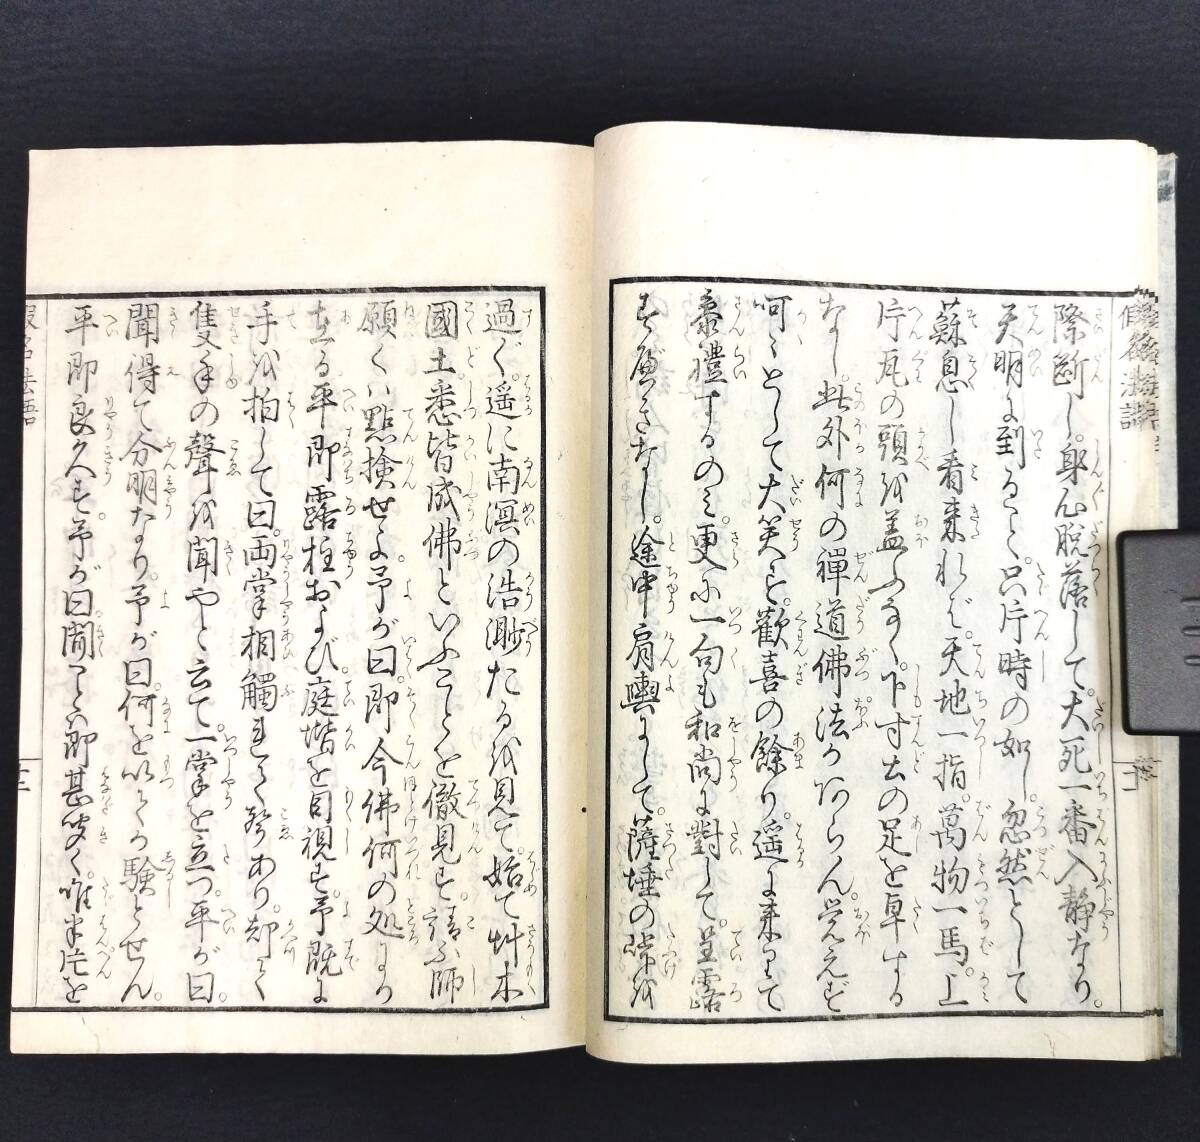 假名法語
際断し。身心脱落して。大死一番入静なり。
天明に到ること。只片時の如し。忽然として
蘇息し看来れば。天地一指。萬物一馬。上
片瓦の頭を蓋ふなく。下寸土の足を卓する
なし。此外何の禪道佛法かあらん。覚えず
呵々として大笑す。歡喜の餘り。遥に来りて
参禮するのみ。更に一句も和尚に對して。呈露
すべきなし。途中肩輿にして。薩埵の嶺を
過ぐ。遥に南溟の浩渺たるを見て。始て艸木
國土悉皆成佛といふことを徹見す。請ふ師
願くは點撿せよ。予が曰。即今佛何の処にか
在る。平即露柱および庭堦を目視す。予既に
手を拍して曰。両掌相觸れて聲あり。却て
隻手の聲を聞やと云て。一掌を立つ。平が曰。
聞得て分明なり。予が曰。何を以てか験とせん。
平即良久す。予が曰。聞ことは即甚聞く。唯半片を
假名法語